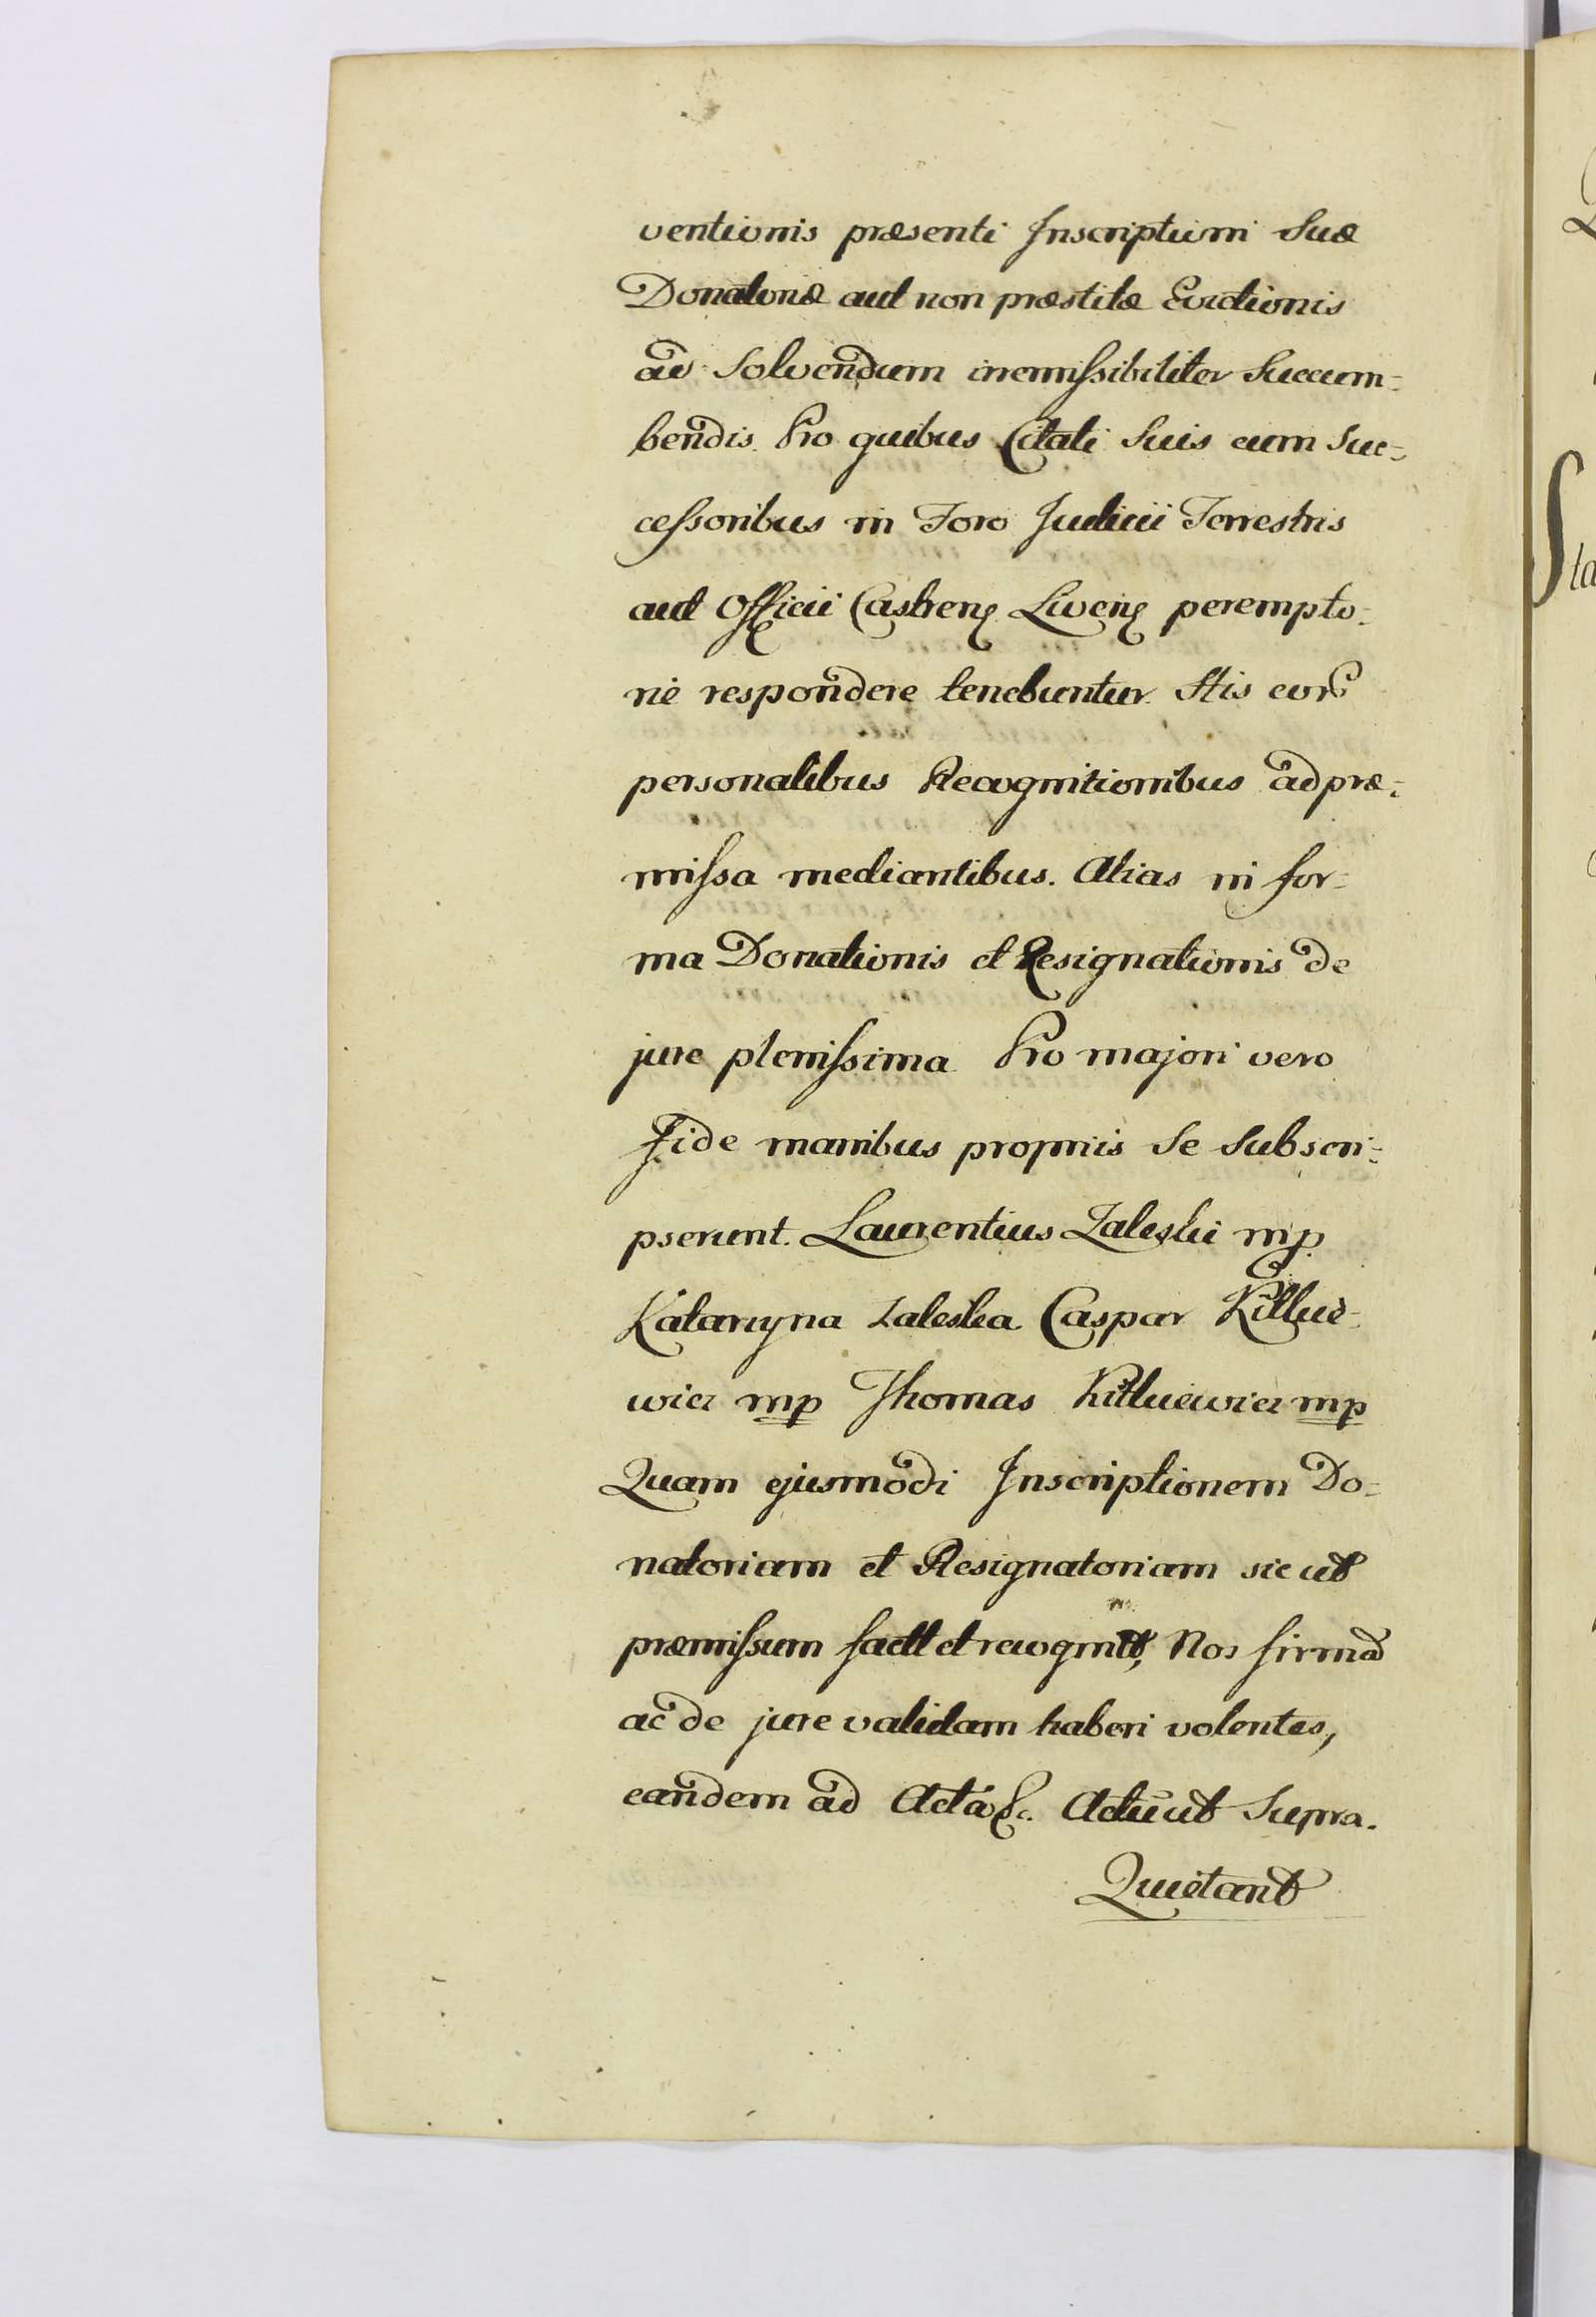 ventionis præsenti Inscriptioni Suæ
Donatoriæ aut non præstitæ Evictionis
ad Solvendum irremissibiliter Succum=
bendis. Pro quibus Citati Suis cum Suc=
cessoribus in Foro Judicii Terrestris
aut Officii Castren. Livens. perempto=
rie respondere tenebuntur. His eor̃
personalibus Recognitionibus ad præ=
missa mediantibus. Alias in for=
ma Donationis et Resignationis de
jure plenissima. Pro majori vero
Fide manibus propriis Se Subscri=
pserunt. Laurentius Zaleski mp.
Katarzyna Zaleska Caspar Kitlue=
wicz mp Thomas Kitluewicz mp
Quam ejusmodi Inscriptionem Do=
natoriam et Resignatoriam sic ut
præmissum fact et recognit, Nos firmã
ac de jure validam haberi volentes,
eandem ad Acta &c. Actũ ut Supra.
Quietant